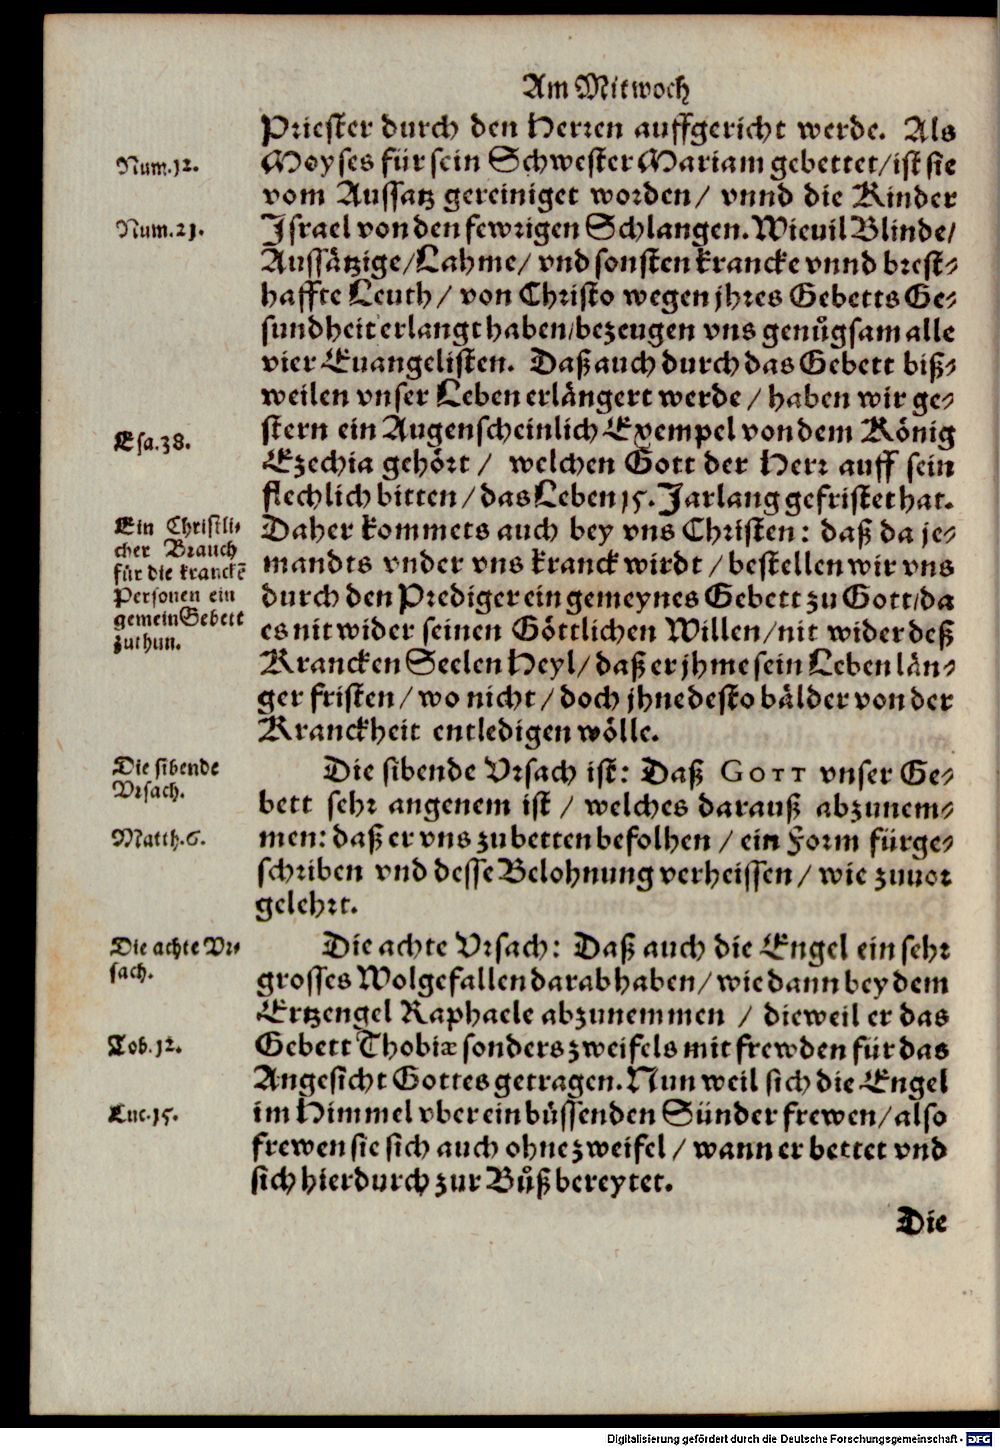 Am Mitwoch
Priester durch den Herren auffgericht werde. Als
Num.12.
Moyses für sein Schwester Mariam gebettet/ist sie
vom Aussatz gereiniget worden/ vnnd die Kinder
Num.21.
Israel von den fewrigen Schlangen. Wieuil Blinde/
Aussätzige/Lahme/ vnd sonsten krancke vnnd brest-
haffte Leuth/ von Christo wegen jhres Gebetts Ge-
sundheit erlangt haben/bezeugen vns genůgsam alle
vier Euangelisten. Daß auch durch das Gebett biß-
weilen vnser Leben erlängert werde/ haben wir ge-
stern ein Augenscheinlich Exempel von dem König
Esa.38.
Ezechia gehört/ welchen Gott der Herr auff sein
flechlich bitten/das Leben 15. Jar lang gefristet hat.
Ein Christli-
cher Brauch
für die krancke̅
Personen ein
gemein Gebett
zuthun.
Daher kommets auch bey vns Christen: daß da je-
mandts vnder vns kranck wirdt/ bestellen wir vns
durch den Prediger ein gemeynes Gebett zu Gott/da
es nit wider seinen Göttlichen Willen/nit wider deß
Krancken Seelen Heyl/daß er jhme sein Leben län-
ger fristen/wo nicht/doch jhne desto bälder von der
Kranckheit entledigen wölle.
Die sibende
Vrsach.
Die sibende Vrsach ist: Daß GOTT vnser Ge-
bett sehr angenem ist/ welches darauß abzunem-
Matth.6.
men: daß er vns zubetten befolhen/ ein Form fürge-
schriben vnd desse Belohnung verheissen/ wie zuuor
gelehrt.
Die achte Vr-
sach.
Die achte Vrsach: Daß auch die Engel ein sehr
grosses Wolgefallen darab haben/wie dann bey dem
Ertzengel Raphaele abzunemmen / dieweil er das
Tob.12.
Gebett Thobiæ sonders zweifels mit frewden für das
Angesicht Gottes getragen. Nun weil sich die Engel
Luc.15.
im Himmel vber ein büssenden Sünder frewen/also
frewen sie sich auch ohne zweifel/ wann er bettet vnd
sich hierdurch zur Bůß bereytet.
Die
Digitalisierung gefördert durch die Deutsche Forschungsgemeinschaft - DFG